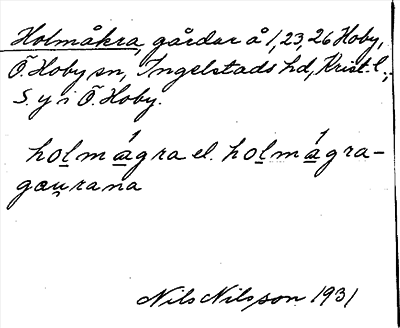 Holmåkra, gårdar å 1, 23, 26 Hoby,
Ö. Hoby sn, Ingelstads hd, Krist. l.,
S. y i Ö. Hoby.
holmágra el. holmágra-
gæu̯rana
Nils Nilsson 1931